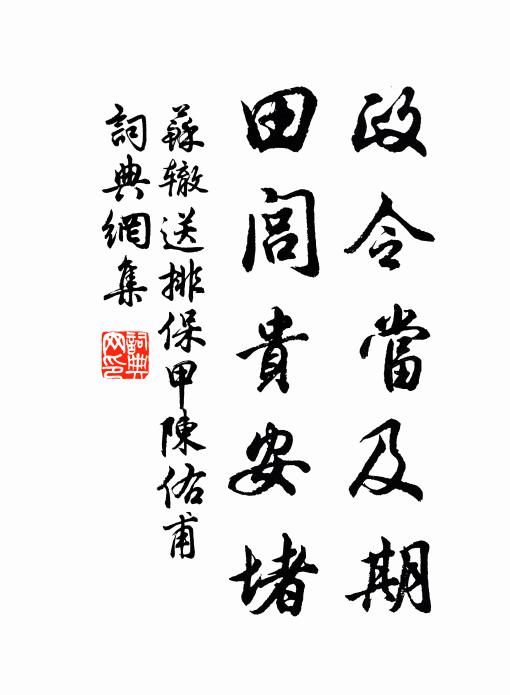 政令當及期
田閭貴安堵
蘇辙送排保甲陳佑甫
詞典網集
詞典网印